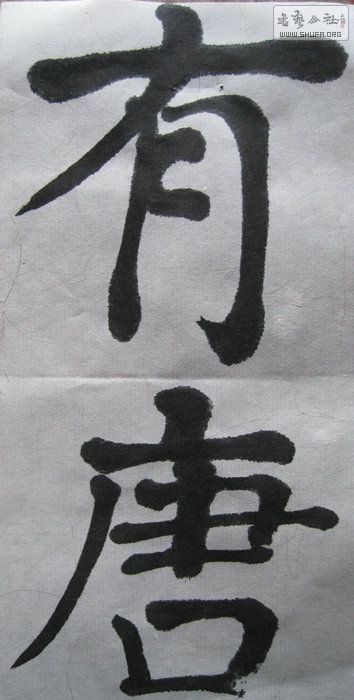 有
唐
书艺公社
WWW.SHUFA.ORG